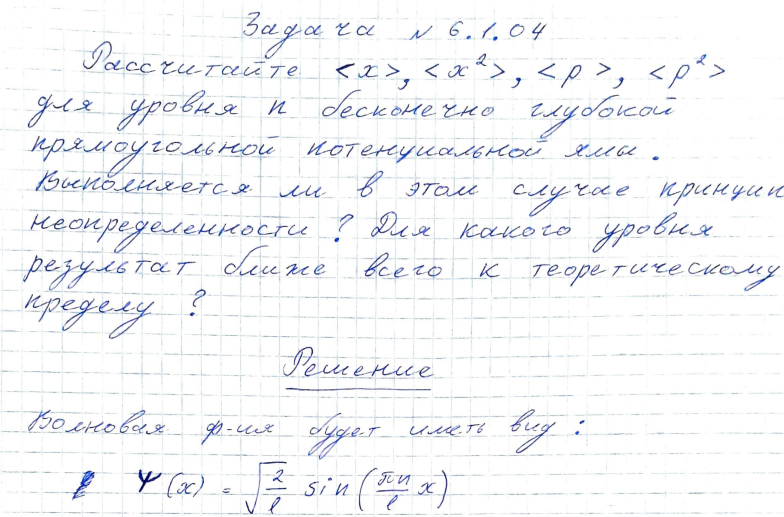 Задача №6.1.04
Рассчитайте <x>, <x²>, <p>, <p²>
для уровня n бесконечно глубокой
прямоугольной потенциальной ямы.
Выполняется ли в этом случае принцип
неопределенности? Для какого уровня
результат ближе всего к теоретическому
пределу?
Решение
Волновая ф-ия будет иметь вид:
Ψ(x) = √(2/l) sin(πn/l x)